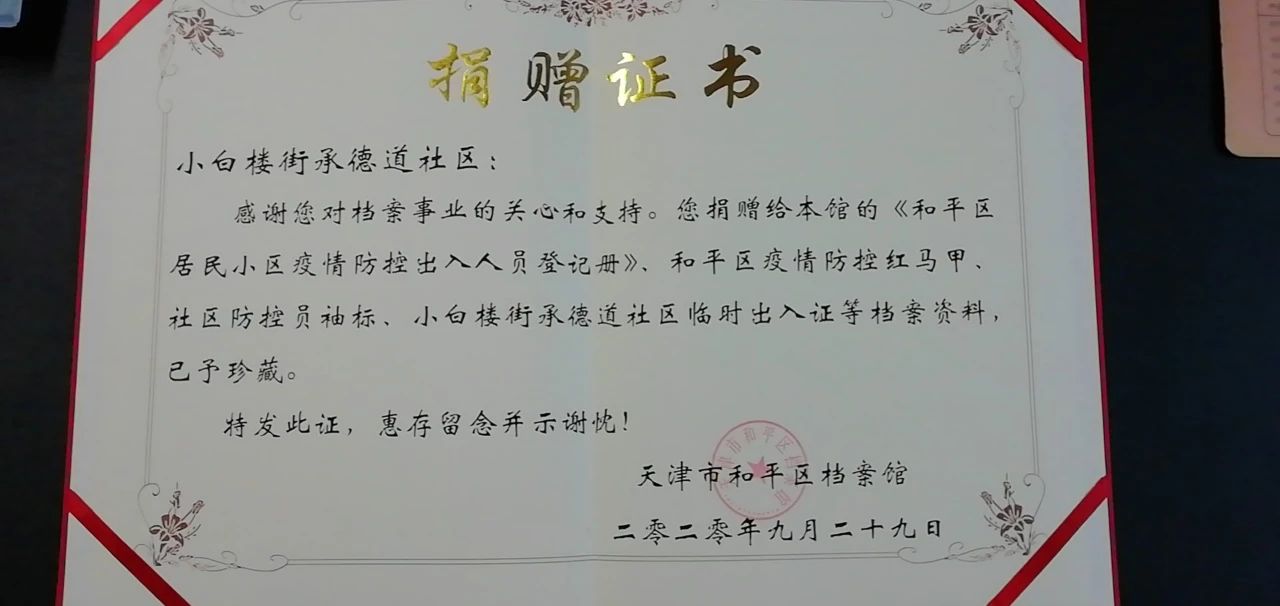 捐赠证书
小白楼街承德道社区：
感谢您对档案事业的关心和支持。您捐赠给本馆的《和平区
居民小区疫情防控出入人员登记册》、和平区疫情防控红马甲、
社区防控员袖标、小白楼街承德道社区临时出入证等档案资料，
已予珍藏。
特发此证，惠存留念并示谢忱！
天津市和平区档案馆
二零二零年九月二十九日